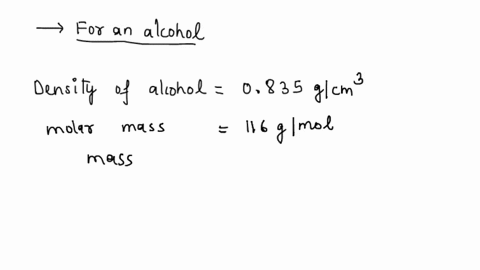 → For an alcohol
Density of alcohol = 0.835 g/cm³
molar mass = 116 g/mol
mass